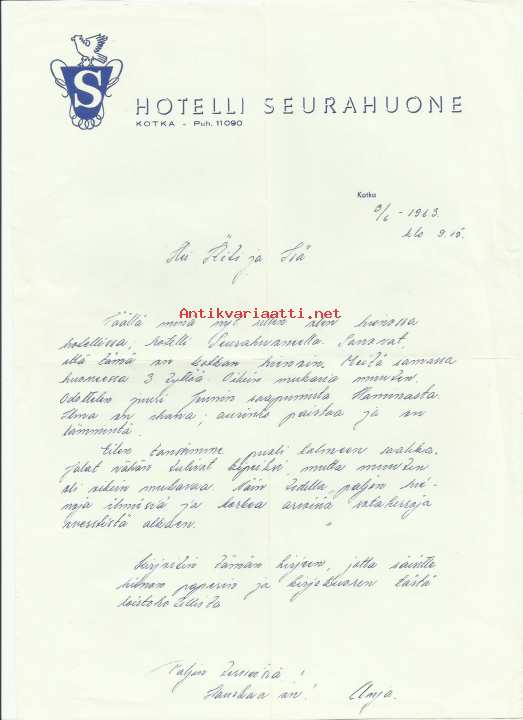 S
HOTELLI SEURAHUONE
KOTKA - Puh. 11090
Kotka
9/6 - 1963.
klo 9.15.
Hei Äiti ja Isä
Antikvariaatti.net
Täällä minä nyt sitten olen hienossa
hotellissa, hotelli Seurahuoneella. Sanoivat,
että tämä on Kotkan hienoin. Meitä samassa
huoneessa 3 tyttöä. Oikein mukavia muuten.
Odottelen juuri junan saapumista Haminasta.
Ilma on ihana, aurinko paistaa ja on
lämmintä.
Eilen tanssimme puoli kolmeen saakka.
jalat vähän tulivat kipeiksi, mutta muuten
oli oikein mukavaa. Näin täällä paljon hie-
noja ilmisiä ja korkea arvoisia sotaherroja
everstistä alkaen.
Kirjoitin tämän kirjeen, jotta säisitte
hienon paperin ja kirjekuoren tästä
loistohotellista
Paljon terveisiä!
Hauskaa on! Anja.